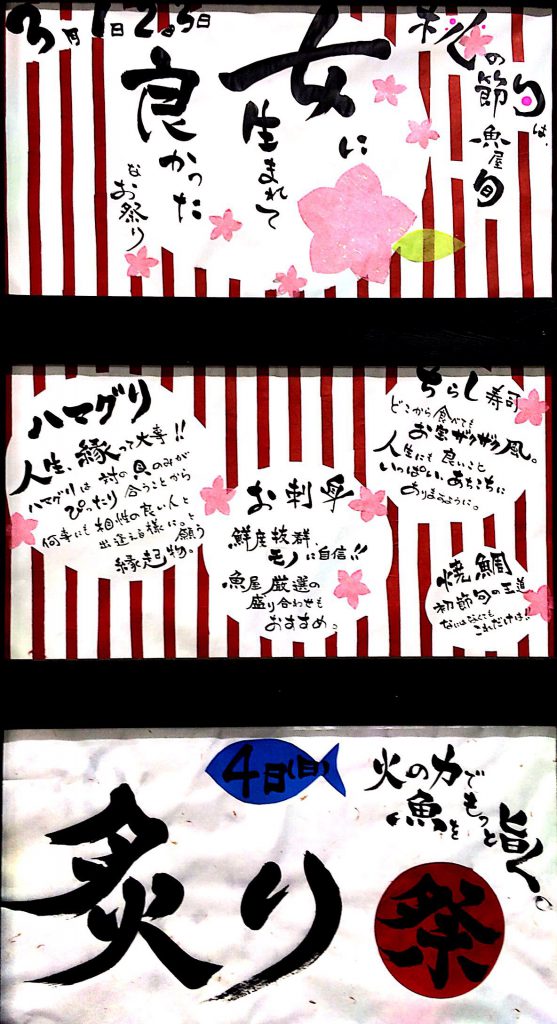 3月1日2日3日
桃の節句は、
魚屋旬
女に
生まれて
良かった
なお祭り
ちらし寿司
どこから食べても
お宝ザクザク風。
人生にも良いこと
いっぱい、あちこちに
ありますように。
焼鯛
初節句の王道
なにはなくても
これだけは!!
お刺身
鮮度抜群、
モノに自信!!
魚屋厳選の
盛り合わせも
おすすめ。
ハマグリ
人生、縁って大事!!
ハマグリは対の貝のみが
ぴったり合うことから
何事にも相性の良い人と
出逢える様に。と願う
縁起物。
4日(日)
火の力で
魚をもっと旨く。
炙り
祭